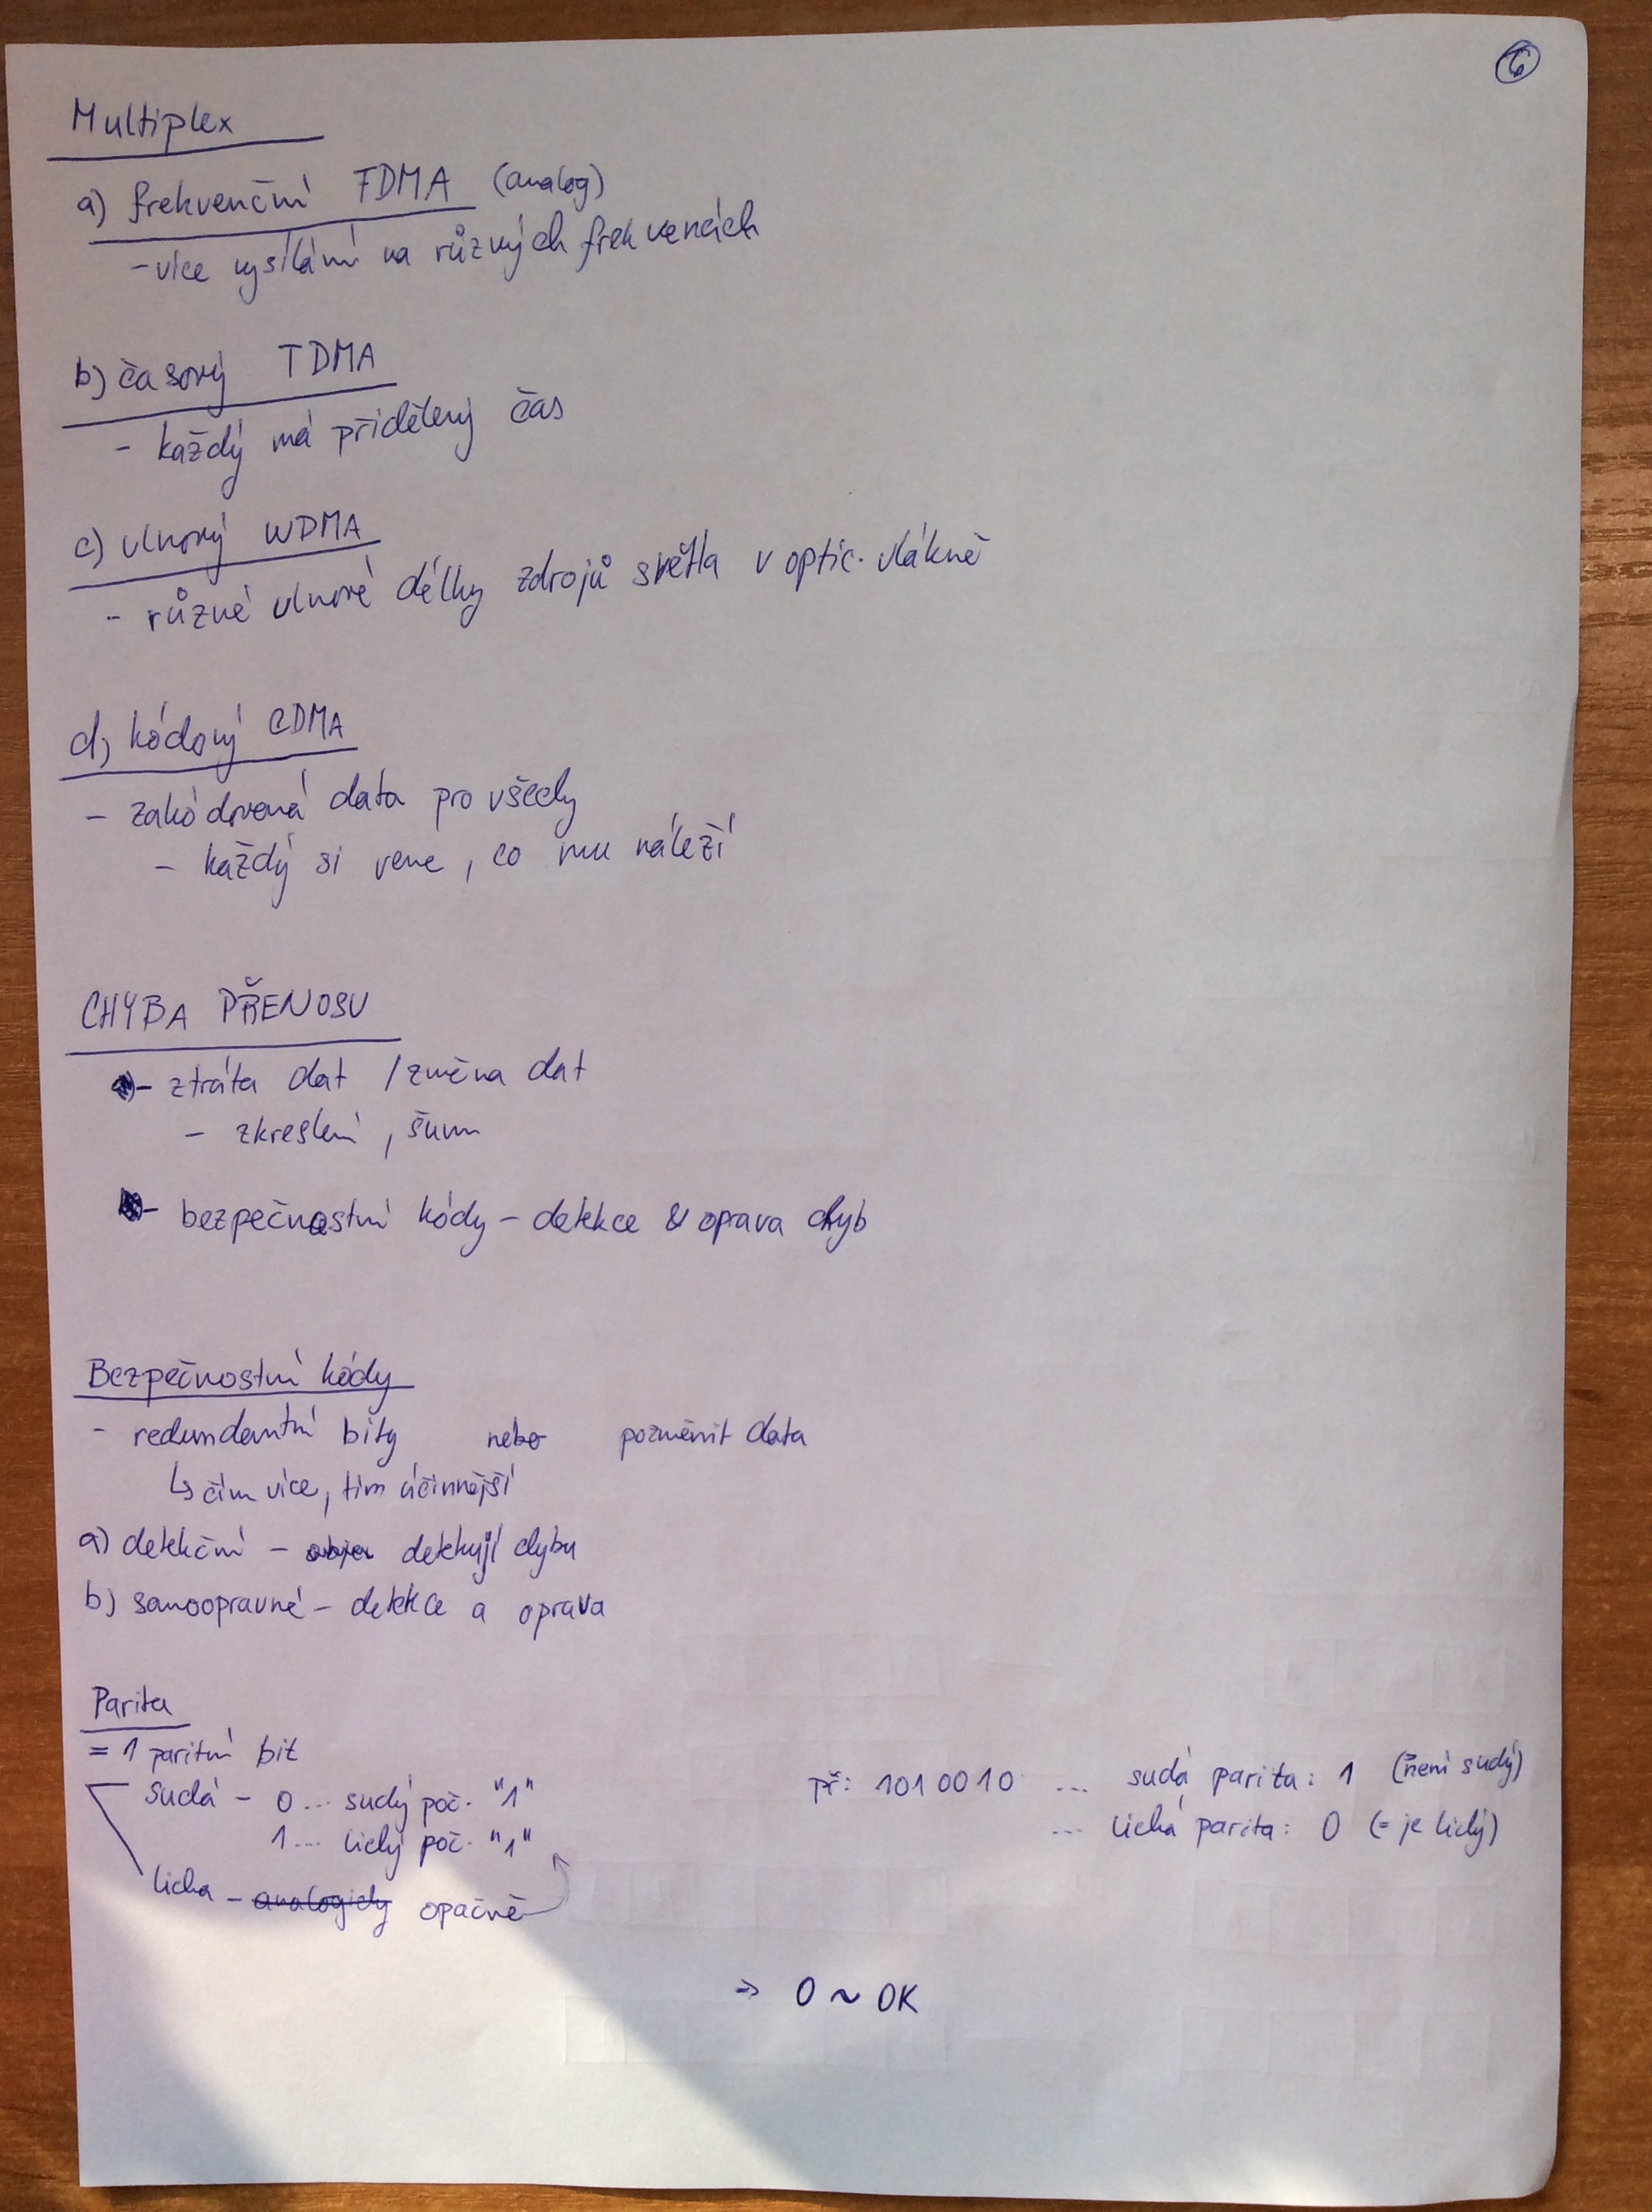 6
Multiplex
a) frekvenční FDMA (analog)
- více vysílání na různých frekvencích
b) časový TDMA
- každý má přidělený čas
c) vlnový WDMA
- různé vlnové délky zdrojů světla v optic. vlákně
d) kódový CDMA
- zakódovaná data pro všechny
- každý si veme, co mu náleží
CHYBA PŘENOSU
- ztráta dat / změna dat
- zkreslení, šum
- bezpečnostní kódy - detekce & oprava chyb
Bezpečnostní kódy
- redundantní bity nebo pozměnit data
↳ čím více, tím účinnější
a) detekční - detekují chybu
b) samoopravné - detekce a oprava
Parita
= 1 paritní bit
sudá - 0... sudý poč. "1" Př: 1010010 ... sudá parita: 1 (není sudý)
1... lichý poč. "1" ... lichá parita: 0 (= je lichý)
lichá - analogicky opačně
⇒ 0 ~ OK